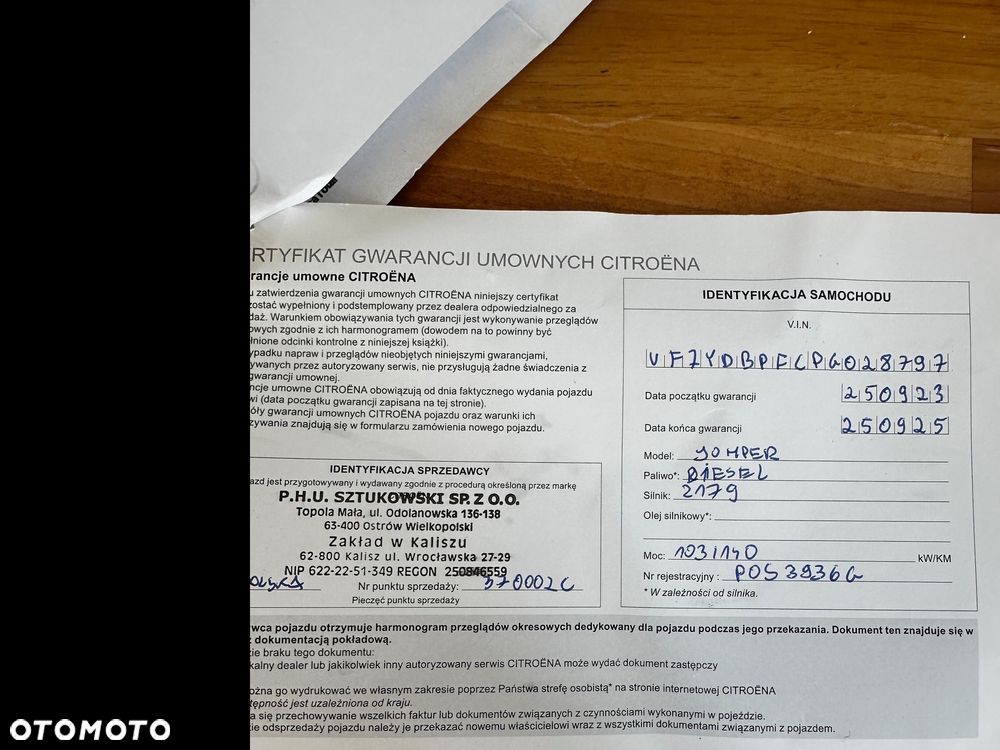 RTYFIKAT GWARANCJI UMOWNYCH CITROËNA
rancje umowne CITROËNA
u zatwierdzenia gwarancji umownych CITROËNA niniejszy certyfikat
zostać wypełniony i podstemplowany przez dealera odpowiedzialnego za
daż. Warunkiem obowiązywania tych gwarancji jest wykonywanie przeglądów
owych zgodnie z ich harmonogramem (dowodem na to powinny być
łnione odcinki kontrolne z niniejszej książki).
ypadku napraw i przeglądów nieobjętych niniejszymi gwarancjami,
ywanych przez autoryzowany serwis, nie przysługują żadne świadczenia z
gwarancji umownej.
ncje umowne CITROËNA obowiązują od dnia faktycznego wydania pojazdu
wi (data początku gwarancji zapisana na tej stronie).
óły gwarancji umownych CITROËNA pojazdu oraz warunki ich
zywania znajdują się w formularzu zamówienia nowego pojazdu.
IDENTYFIKACJA SPRZEDAWCY
azd jest przygotowywany i wydawany zgodnie z procedurą określoną przez markę
P.H.U. SZTUKOWSKI SP. Z O.O.
Topola Mała, ul. Odolanowska 136-138
63-400 Ostrów Wielkopolski
Zakład w Kaliszu
62-800 Kalisz ul. Wrocławska 27-29
NIP 622-22-51-349 REGON 250846559
Nr punktu sprzedaży: 570002C
Pieczęć punktu sprzedaży
IDENTYFIKACJA SAMOCHODU
V.I.N.
VFZYDBPFCPG028797
Data początku gwarancji 250923
Data końca gwarancji 250925
Model: JUMPER
Paliwo*: DIESEL
Silnik: 2179
Olej silnikowy*:
Moc: 103/140 kW/KM
Nr rejestracyjny : POS3936G
* W zależności od silnika.
wca pojazdu otrzymuje harmonogram przeglądów okresowych dedykowany dla pojazdu podczas jego przekazania. Dokument ten znajduje się w
z dokumentacją pokładową.
zie braku tego dokumentu:
kalny dealer lub jakikolwiek inny autoryzowany serwis CITROËNA może wydać dokument zastępczy
ożna go wydrukować we własnym zakresie poprzez Państwa strefę osobistą* na stronie internetowej CITROËNA
tępność jest uzależniona od kraju.
a się przechowywanie wszelkich faktur lub dokumentów związanych z czynnościami wykonanymi w pojeździe.
ie odsprzedaży pojazdu należy je przekazać nowemu właścicielowi wraz z wszystkimi dokumentami związanymi z pojazdem.
OTOMOTO